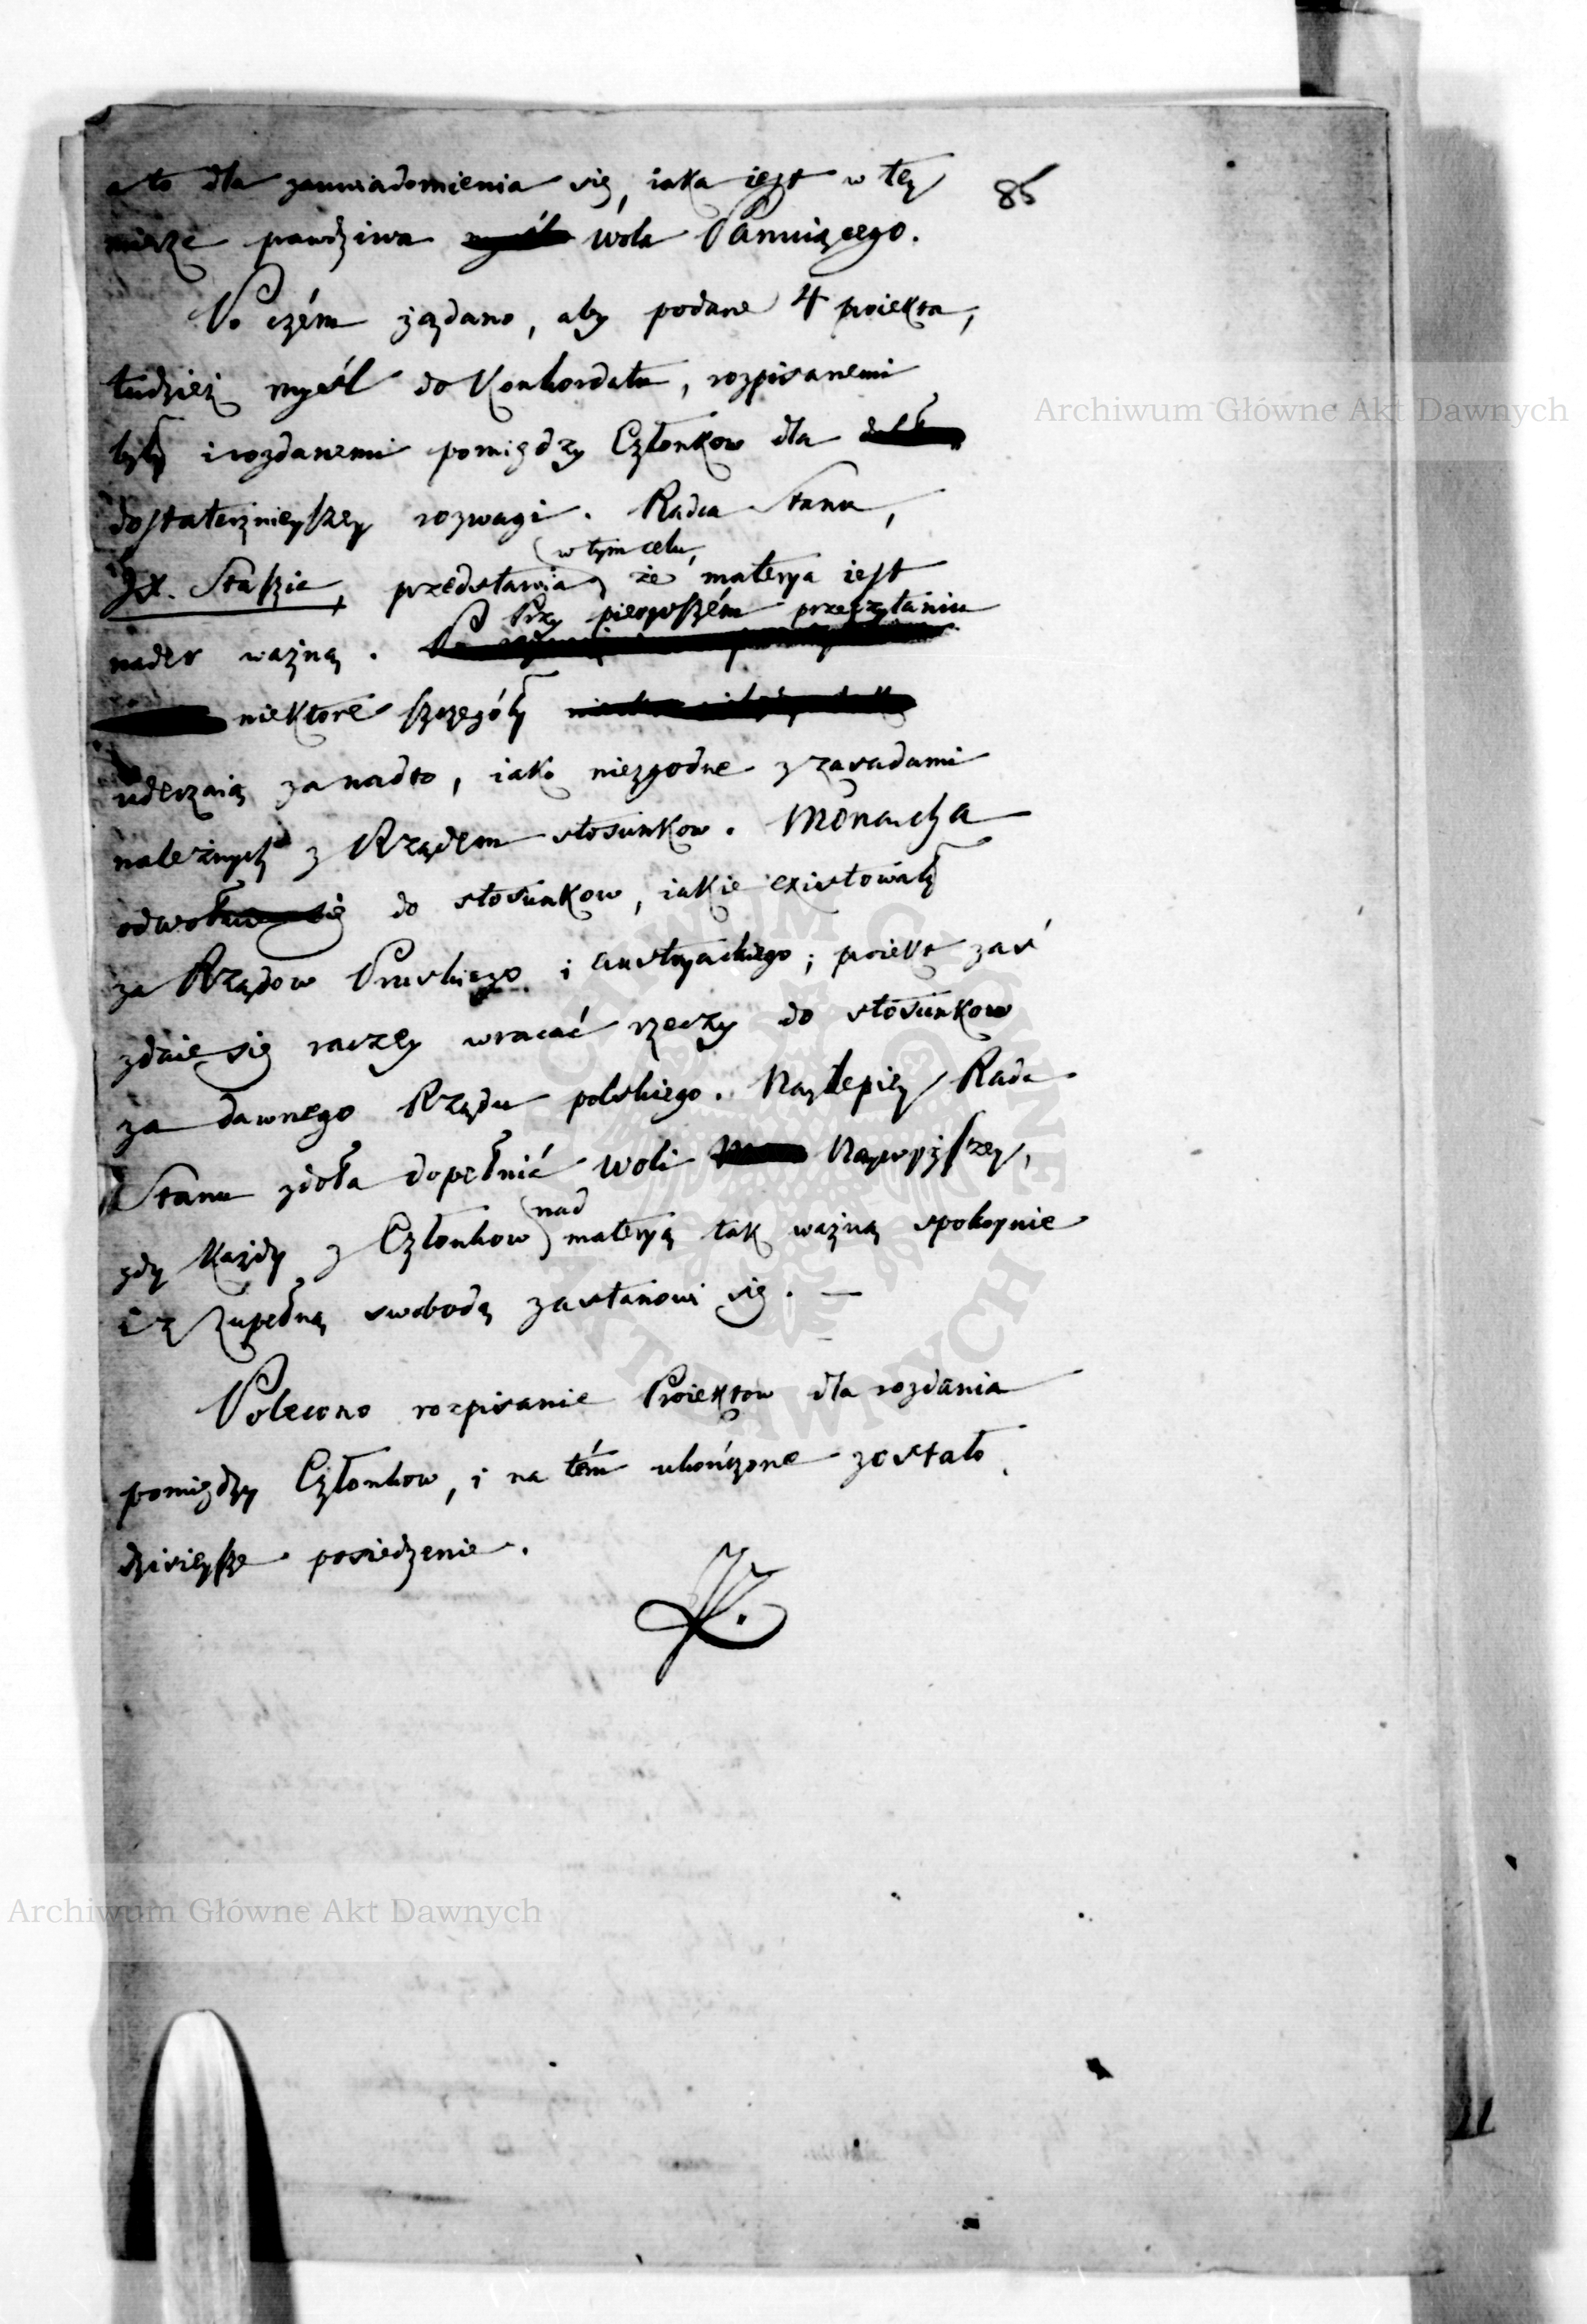 a to dla zauwiadomienia się, iaka iest w tey
85
mierze prawdziwa myśl wola Panuiącego.
Po czém żądano, aby podane 4 proiekta,
tudzież myśl do Konkordatu, rozpisanemi
były i rozdanemi pomiędzy Członkow dla
dostatecznieyszey rozwagi. Radca Stanu,
w tym celu,
JX. Staszic, przedstawia, że materya iest
Przy pierwszém przeczytaniu
nader ważną.
niektore szczegóły
uderzaią zanadto, iako niezgodne z zasadami
należnych z Rządem stosunkow. Monarcha
odwołuie się do stosunkow, iakie exystowały
za Rządow Pruskiego i austryackiego; proiekt zaś
zdaie się raczey wracać rzeczy do stosunkow
za dawnego Rządu polskiego. Naylepiey Rada
Stanu zdoła dopełnić woli Naywyższey,
nad
gdy każdy z Członkow materyą tak ważną spokoynie
i z zupełną swobodą zastanowi się. —
Polecono rozpisanie Proiektow dla rozdania
pomiędzy Członkow, i na tém ukończone zostało
dzisieysze posiedzenie.
Archiwum Główne Akt Dawnych
Archiwum Główne Akt Dawnych
ARCHIWUM GŁÓWNE
AKT DAWNYCH